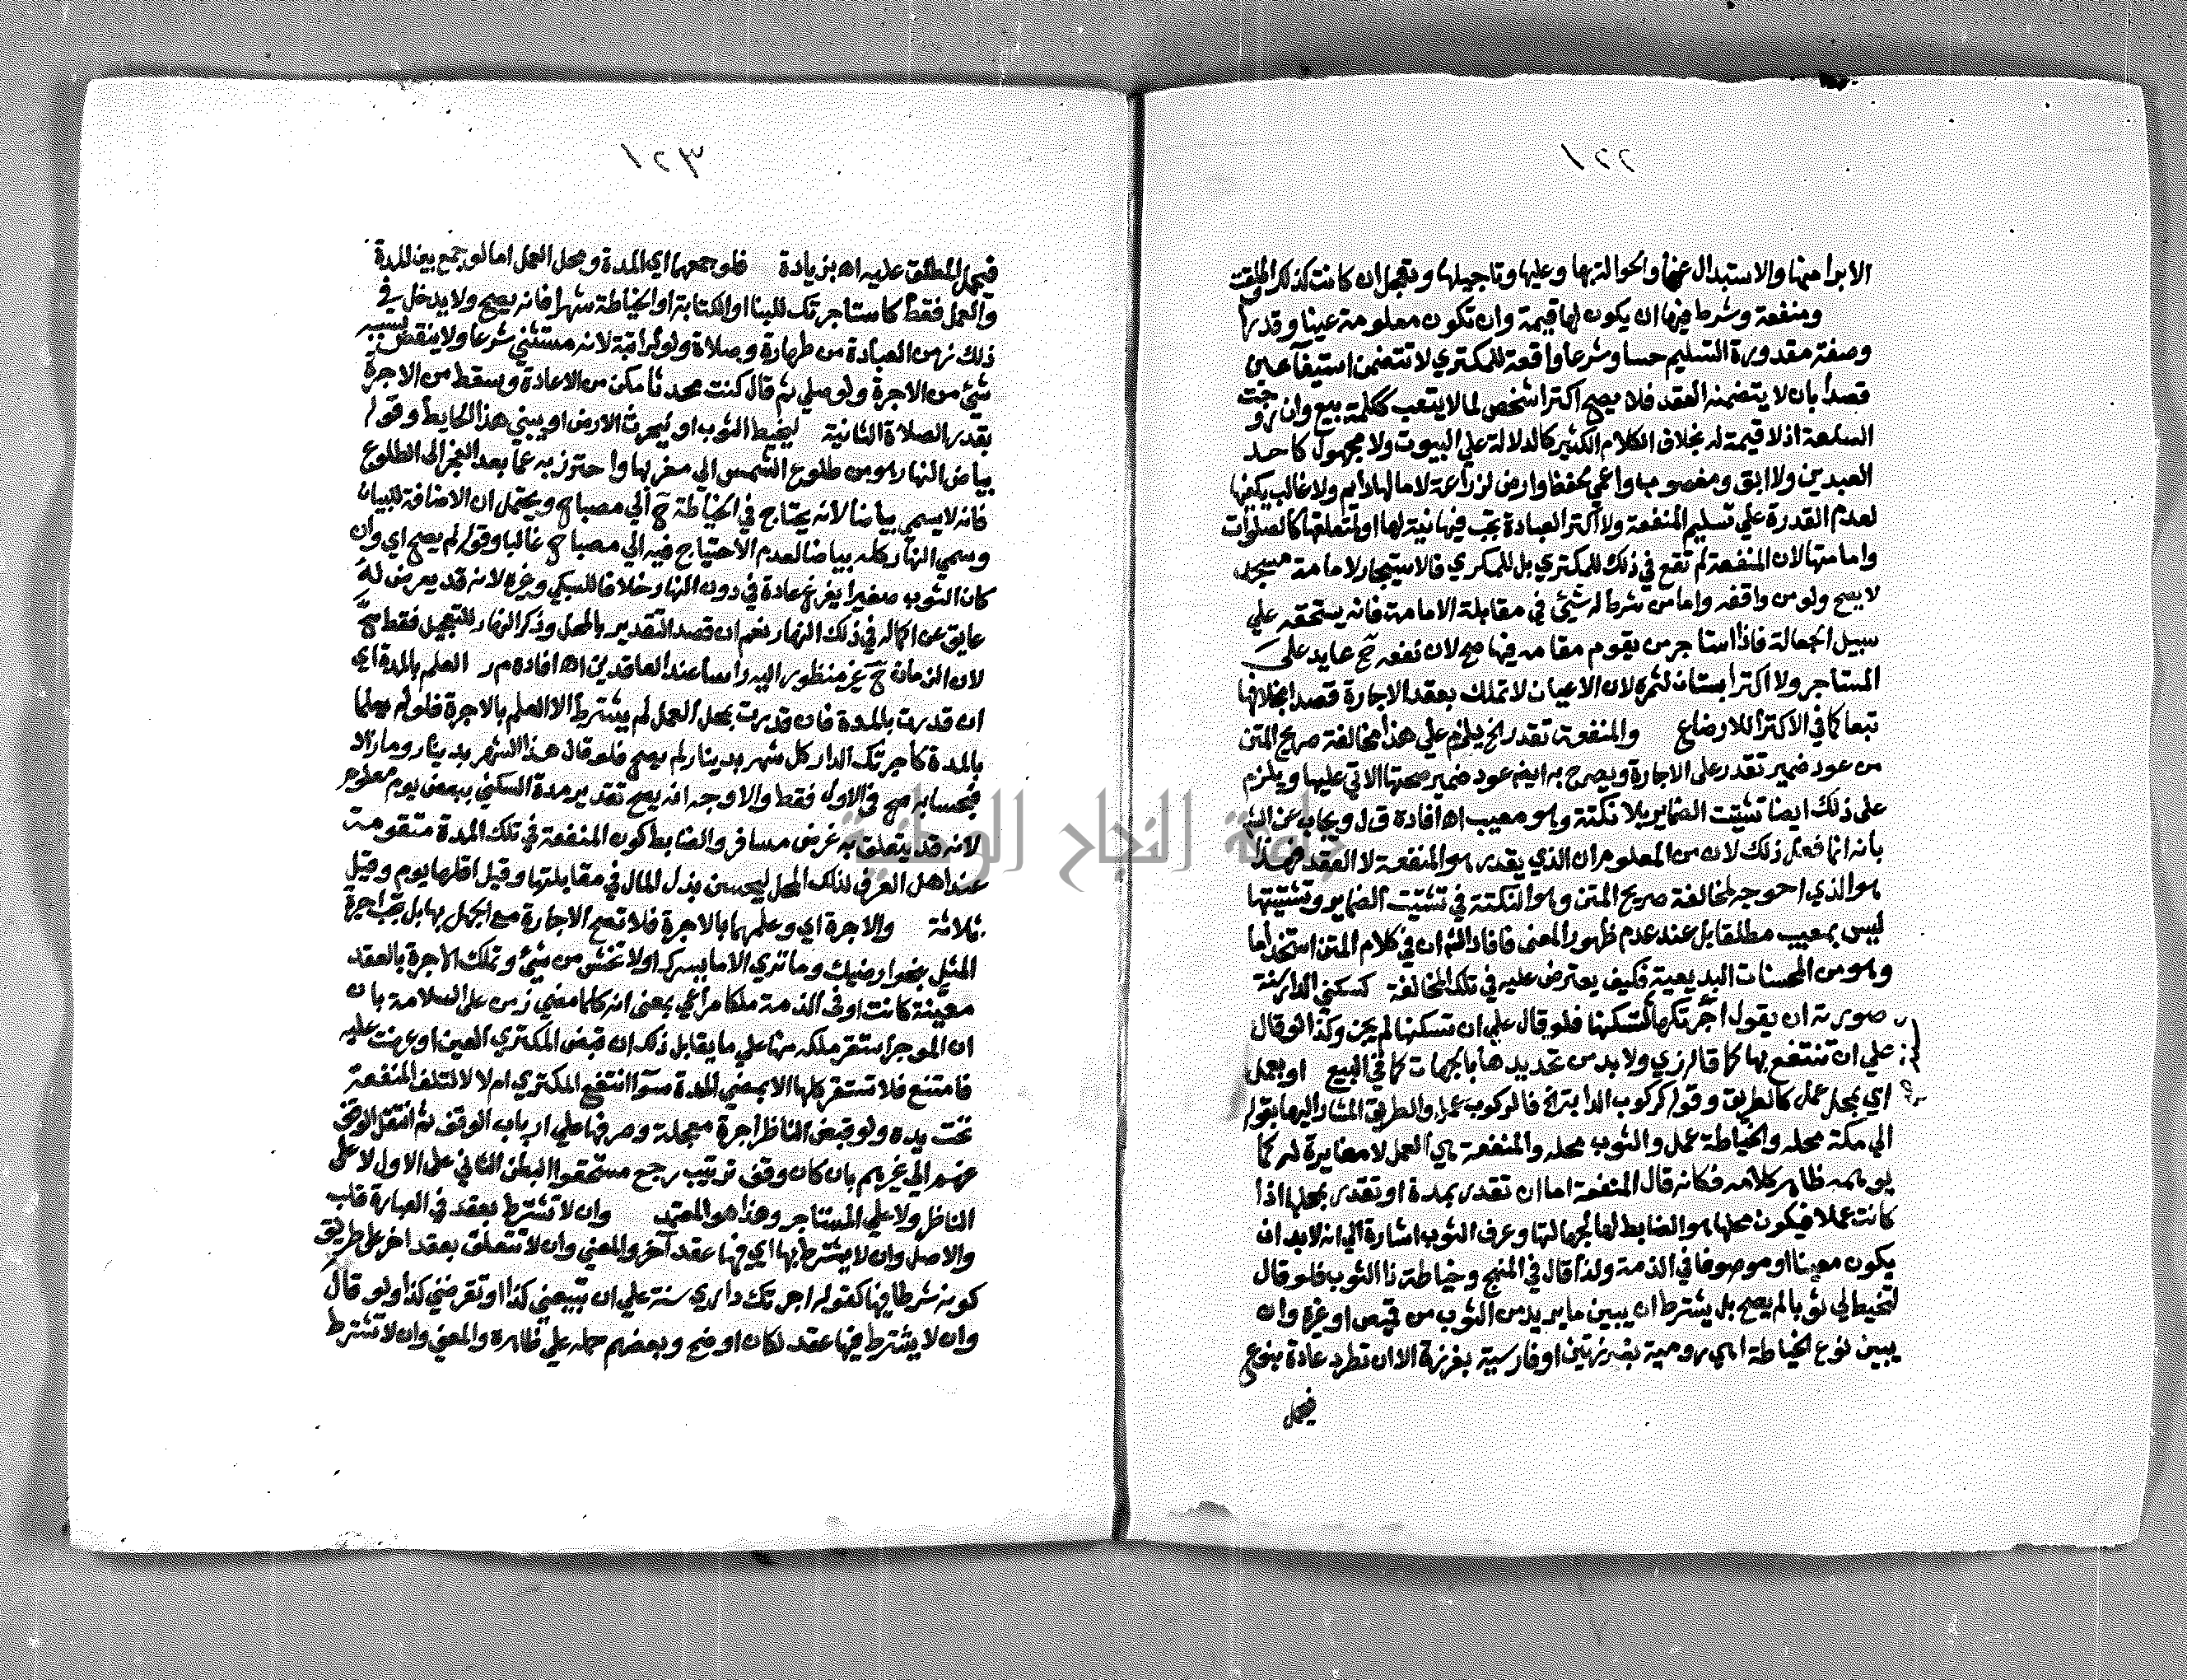 ٢٢١
الابرا منها والاستبدال عنها والحوالة بها وعليها وتاجيلها وتعجل ان كانت كذلك او اطلقت
ومنفعة وشرط فيها ان يكون لها قيمة وان تكون معلومة عينا وقدرا
وصفة مقدورة التسليم حسا وشرعا واقعة للمكتري لا تتضمن استيفآ عين
قصدا بان لا يتضمنه العقد فلا يصح اكترا شخص لما لا يتعب ككلمة بيع وان روجت
السلعة اذ لا قيمة له بخلاف الكلام الكثير كالدلالة علي البيوت ولا مجهول كاحد
العبدين ولا ابق ومغصوب واعمي لحفظ وارض لزراعة لا ما لها دايم ولا غالب يكفيها
لعدم القدرة علي تسليم المنفعة ولا اكترا لعبادة تجب فيها نية لها او لمتعلقها كالصلوات
وامامتها لان المنفعة لم تقع في ذلك للمكتري بل للمكري فالاستيجار لامامة مسجد
لا يصح ولو من واقفه واما من شرط له شيئ في مقابلة الامامة فانه يستحقه علي
سبيل الجعالة فاذا استاجر من يقوم مقامه فيها صح لان نفعه ح عايد على
المستاجر ولا اكترا بستان لثمره لان الاعيان لا تملك بعقد الاجارة قصدا بخلافها
تبعا كما في الاكترا للارضاع والمنفعة تقدر الخ يلزم علي هذا مخالفة صريح المتن
من عود ضمير تقدر على الاجارة ويصرح به ايضا عود ضمير صحتها الاتي عليها ويلزم
على ذلك ايضا تشتيت الضماير بلا نكتة وهو معيب اه افادة ق ل ويجاب عن الش
بانه انما فعل ذلك لان من المعلوم ان الذي يقدر هو المنفعة لا العقد فهذا
هو الذي احوجه لمخالفة صريح المتن وهو النكتة في تشتيت الضماير وتشتيتها
ليس بمعيب مطلقا بل عند عدم ظهور المعنى فافاد الش ان في كلام المتن استخداما
وهو من المحسنات البديعية فكيف يعترض عليه في تلك المخالفة كسكني الدار سنة
صورته ان يقول اجرتكها لتسكنها فلو قال علي ان تسكنها لم يجز وكذا لو قال
علي ان تنتفع بها كما قاله زي ولا بد من تحديدها بالجهات كما في البيع او بعمل
اي بمحل عمل كالطريق وقوله كركوب الدابة الخ فالركوب عمل والطريق المشار اليها بقوله
الي مكة محله والخياطة عمل والثوب محله والمنفعة هي العمل لا مغايرة له كما
يوهمه ظاهر كلامه فكانه قال المنفعة اما ان تقدر بمدة او تقدر بمحلها اذا
كانت عملا فيكون محلها هو الضابط لها لجهالتها وعرف الثوب اشارة الي انه لا بد ان
يكون معينا او موصوفا في الذمة ولذا قال في المنهج وخياطة ذا الثوب فلو قال
لتخيط لي ثوبا لم يصح بل يشترط ان يبين ما يريد من الثوب من قميص او غيره وان
يبين نوع الخياطة اهي رومية بغرزتين او فارسية بغرزة الا ان تطرد عادة بنوع
فيحمل
٢٢٣١
فيحمل المطلق عليه اه بزيادة فلو جمعهما اي المدة ومحل العمل اما لو جمع بين المدة
والعمل فقط كاستاجرتك للبنا او الكتابة او الخياطة شهرا فانه يصح ولا يدخل في
ذلك زمن العبادة من طهارة وصلاة ولو لراتبة لانه مستثني شرعا ولا ينقص بسببه
شئ من الاجرة ولو صلي ثم قال كنت محدثا مكن من الاعادة وسقط من الاجرة
بقدر الصلاة الثانية ليخيط الثوب او ليحرث الارض او يبني هذا الحايط وقوله
بياض النهار هو من طلوع الشمس الي مغربها واحترز به عما بعد الفجر الى الطلوع
فانه لا يسمي بياضا لانه يحتاج في الخياطة ح الي مصباح ويحتمل ان الاضافة للبيان
وسمي النهار كله بياضا لعدم الاحتياج فيه الي مصباح غالبا وقوله لم يصح اي وان
كان الثوب صغيرا يفرغ عادة في دون النهار خلافا للسبكي وغيره لانه قد يعرض له
عايق عن اكماله في ذلك النهار نعم ان قصد التقدير بالمحل وذكر النهار للتعجيل فقط صح
لان الزمان ح غير منظور اليه راسا عند العاقدين اه افاده م ر العلم بالمدة اي
ان قدرت بالمدة فان قدرت بمحل العمل لم يشترط الا العلم بالاجرة فلو لم يعلما
بالمدة كاجرتك الدار كل شهر بدينار لم يصح فلو قال هذا الشهر بدينار وما زاد
فبحسابه صح في الاول فقط والاوجه انه يصح تقدير مدة السكني ببعض يوم معلوم
لانه قد يتعلق به غرض مسافر والضابط كون المنفعة في تلك المدة متقومة
عند اهل العرف لذلك المحل ليحسن بذل المال في مقابلتها وقيل اقلها يوم وقيل
ثلاثة والاجرة اي وعلمهما بالاجرة فلا تصح الاجارة مع الجهل بها بل تجب اجرة
المثل بنحو ارضيك وما تري الا ما يسرك او لا تخش من شيئ وتملك الاجرة بالعقد
معينة كانت او في الذمة ملكا مراعي بمعنى انه كلما مضي زمن على السلامة بان
ان الموجر استقر ملكه منها علي ما يقابل ذلك ان قبض المكتري العين او عرضت عليه
فامتنع فلا تستقر كلها الا بمضي المدة سوآ انتفع المكتري ام لا لتلف المنفعة
تحت يده ولو قبض الناظر اجرة معجلة وصرفها علي ارباب الوقف ثم انتقل الوقف
عنهم الي غيرهم بان كان وقف ترتيب رجع مستحقوا البطن الثاني على الاول لا على
الناظر ولا علي المستاجر وهذا هو المعتمد وان لا تشترط بعقد في العبارة قلب
والاصل وان لا يشترط بها اي فيها عقد آخر والمعني وان لا تتعلق بعقد اخر على طريق
كونه شرطا فيها كقوله اجرتك داري سنة علي ان تبيعني كذا او تقرضني كذا ولو قال
وان لا يشترط فيها عقد لكان اوضح وبعضهم حمله علي ظاهره والمعني وان لا تشترط
جامعة النجاح الوطنية